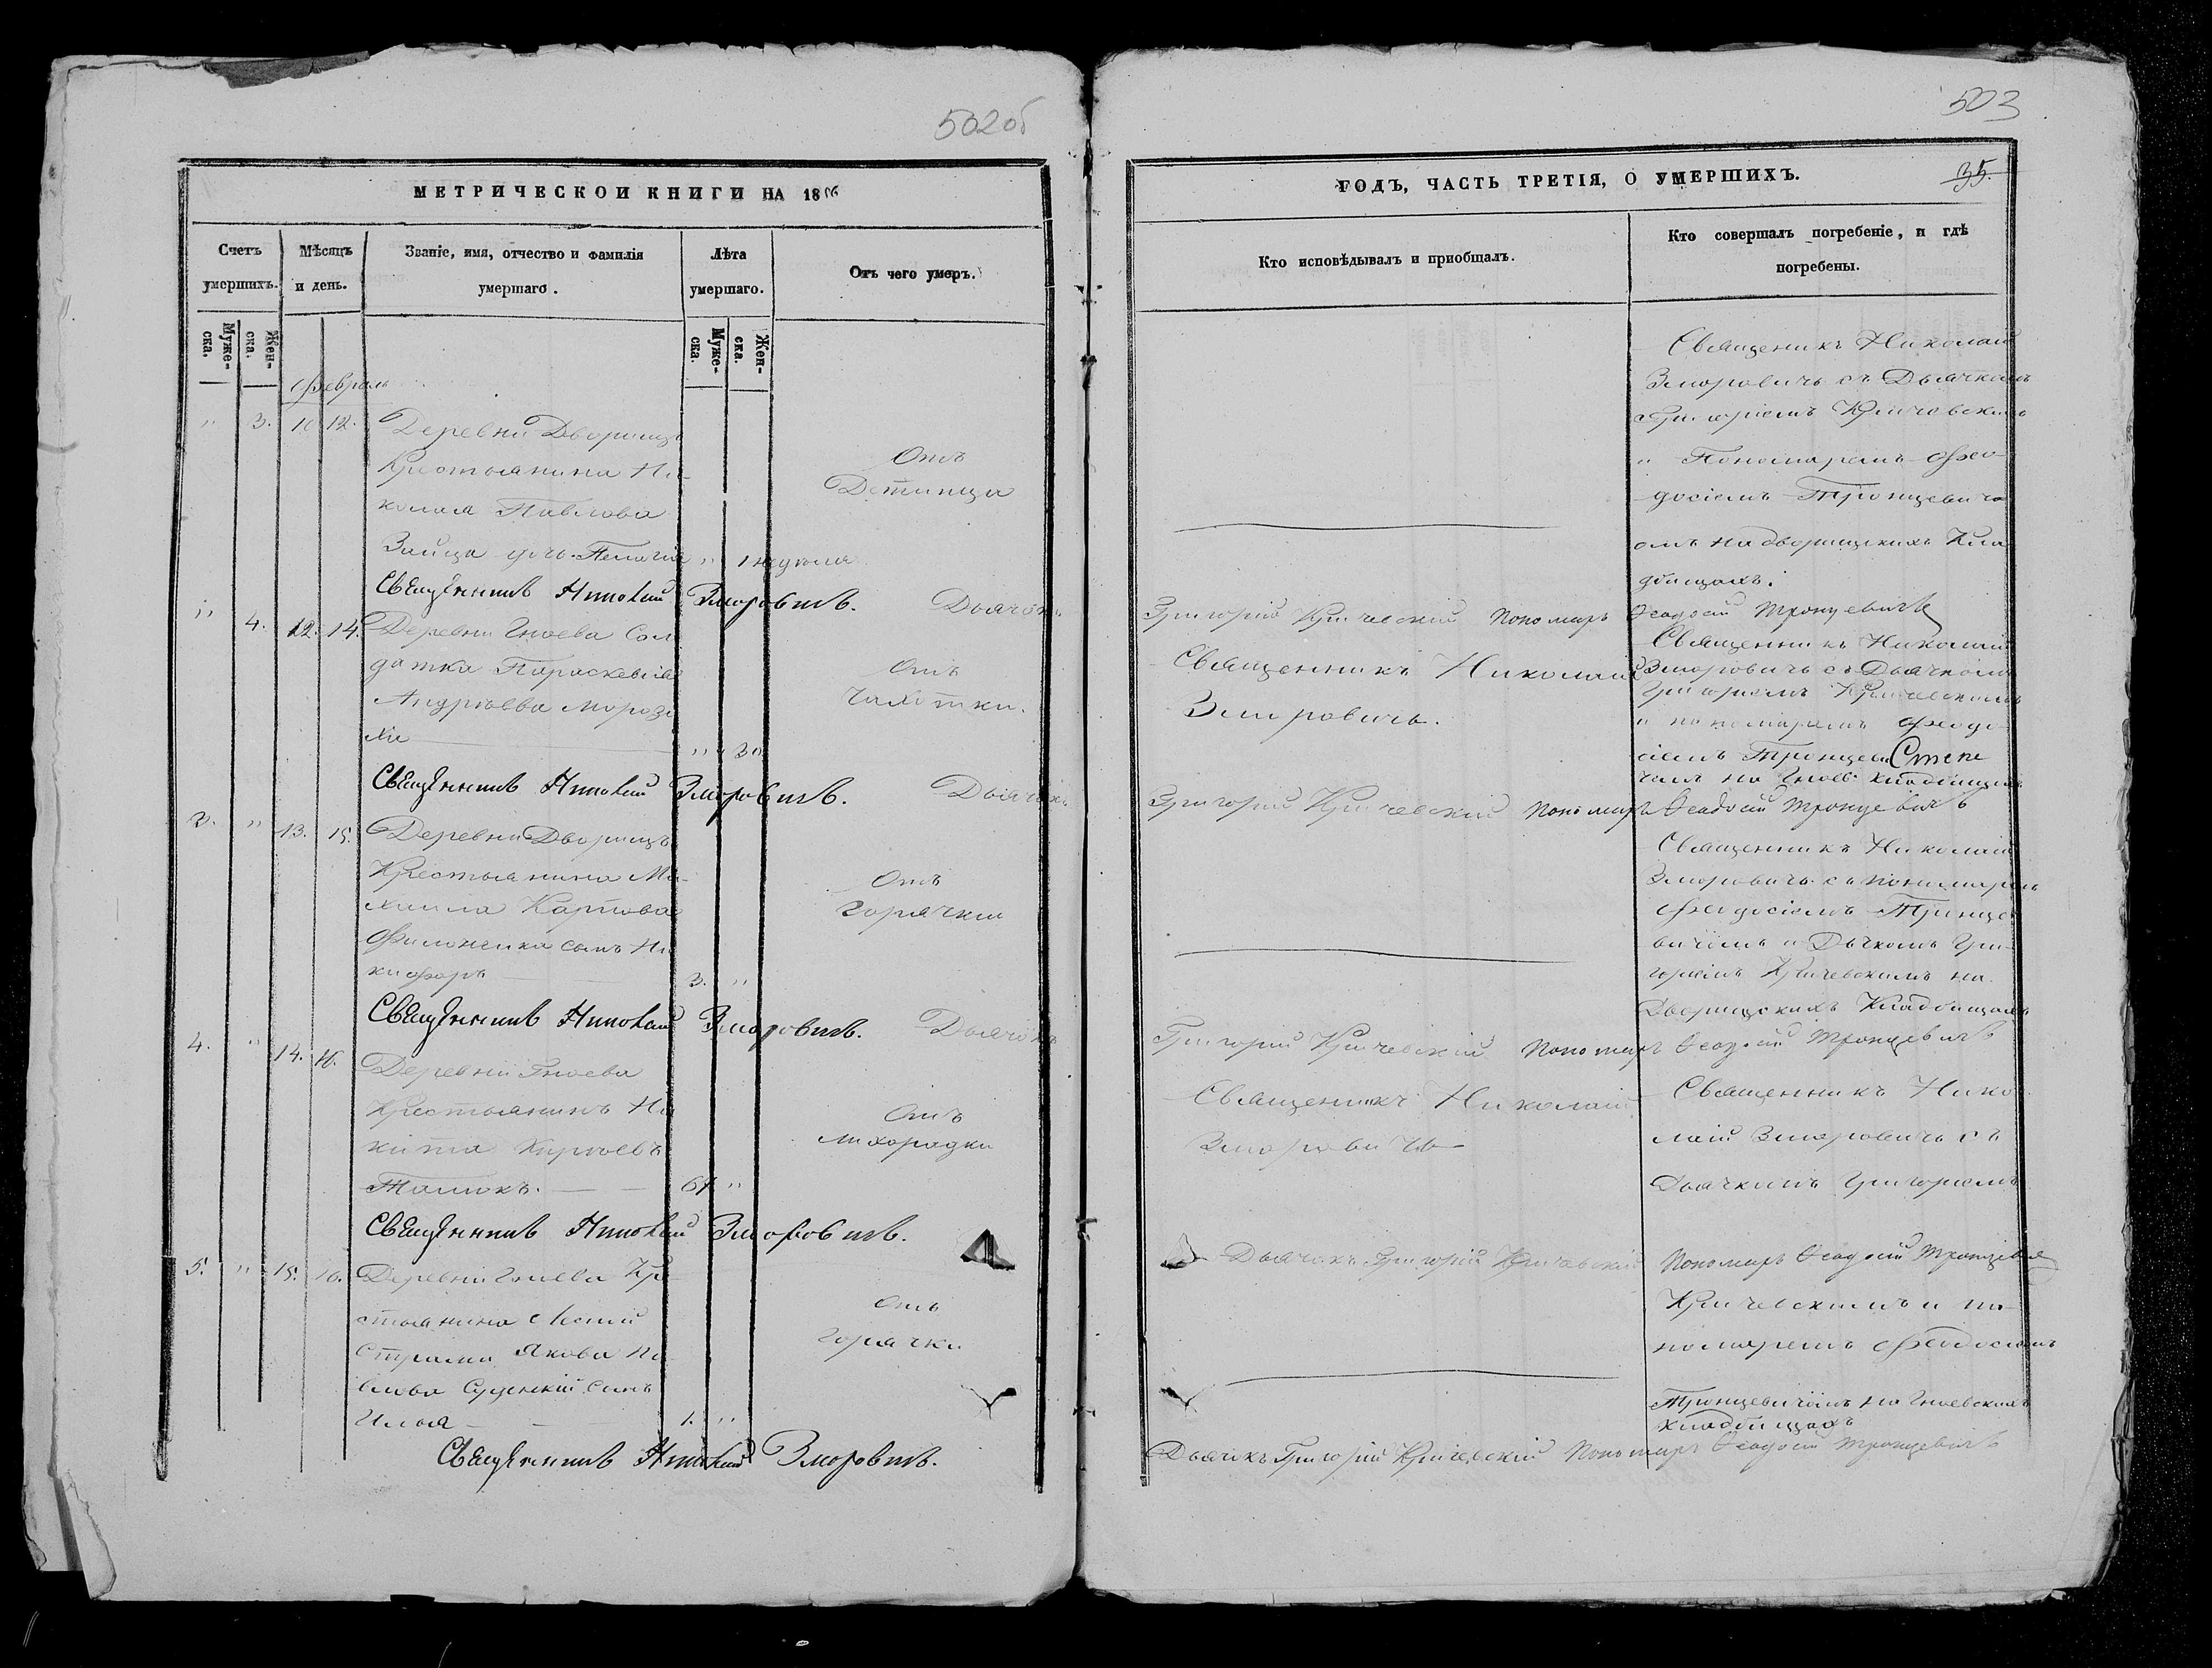 502об
МЕТРИЧЕСКОЙ КНИГИ НА 1856
Счетъ умершихъ.
Мѣсяцъ и день.
Званіе, имя, отчество и фамилія умершаго.
Лѣта умершаго.
Отъ чего умеръ.
Муже-ска.
Жен-ска.
Муже-ска.
Жен-ска.
Февраль
" 3. 10 12. Деревни Дворищъ
Крестьянина Ни-
колая Павлова
Зайца дочь Пелагія " 1 недѣля
Отъ
Детинца
Священникъ Николай Зморовичъ. Дьячокъ
" 4. 12. 14. Деревни Гноева Сол
датка Параскевія
Андреева Мороз
" 30
Отъ
Чахотки.
Священникъ Николай Зморовичъ. Дьячокъ
3. " 13. 15. Деревни Дворищъ
Крестьянина Ми-
хаила Карпова
Филоненка сынъ Ни
кифоръ 3. "
Отъ
Горячки
Священникъ Николай Зморовичъ. Дьячокъ
4. " 14. 16. Деревни Гноева
Крестьянинъ Ни
кита Кириевъ
"
Отъ
Лихорадки
Священникъ Николай Зморовичъ.
5. " 15. 16. Деревни Гноева Кре
стьянина
Якова Па
влова сынъ
Илья 1. "
Отъ
Горячки
Священникъ Николай Зморовичъ.
503
ГОДЪ, ЧАСТЬ ТРЕТІЯ, О УМЕРШИХЪ.
35.
Кто исповѣдывалъ и пріобщалъ.
Кто совершалъ погребеніе, и гдѣ погребены.
Священикъ Николай
Зморовичъ съ Дьячкомъ
Григоріемъ Кричевскимъ
и Пономаремъ Фео-
досіемъ Тронцевичо
омъ на дворищскихъ Кла
дбищахъ.
Григорій Кричевскій Пономарь Ѳеодосій Тронцевичъ
Священникъ Николай
Зморовичъ.
Священникъ Николай
Зморовичъ съ Дьячкомъ
Григоріемъ Кричевскимъ
и пономаремъ Феодо
сіемъ Тронцеви
чемъ на Гноев. кладбищахъ
Григорій Кричевскій Пономарь Ѳеодосій Тронцевичъ
Священникъ Николай
Зморовичъ съ пономаремъ
Феодосіемъ Тронце
вичемъ и Дьчкомъ Гри-
горіемъ Кричевскимъ на
Дворищскихъ Кладбищахъ
Григорій Кричевскій Пономарь Ѳеодосій Тронцевичъ
Священикъ Николай
Зморовичъ
Священникъ Нико
лай Зморовичъ съ
Дьячкомъ Григоріемъ
Дьячокъ Григорій Кричевскій Пономарь Ѳеодосій Тронцевич
Кричевскимъ и по-
номаремъ Феодосіемъ
Тронцевичомъ на Гноевскихъ
кладбищахъ
Дьячокъ Григорій Кричевскій Пономарь Ѳеодосій Тронцевичъ